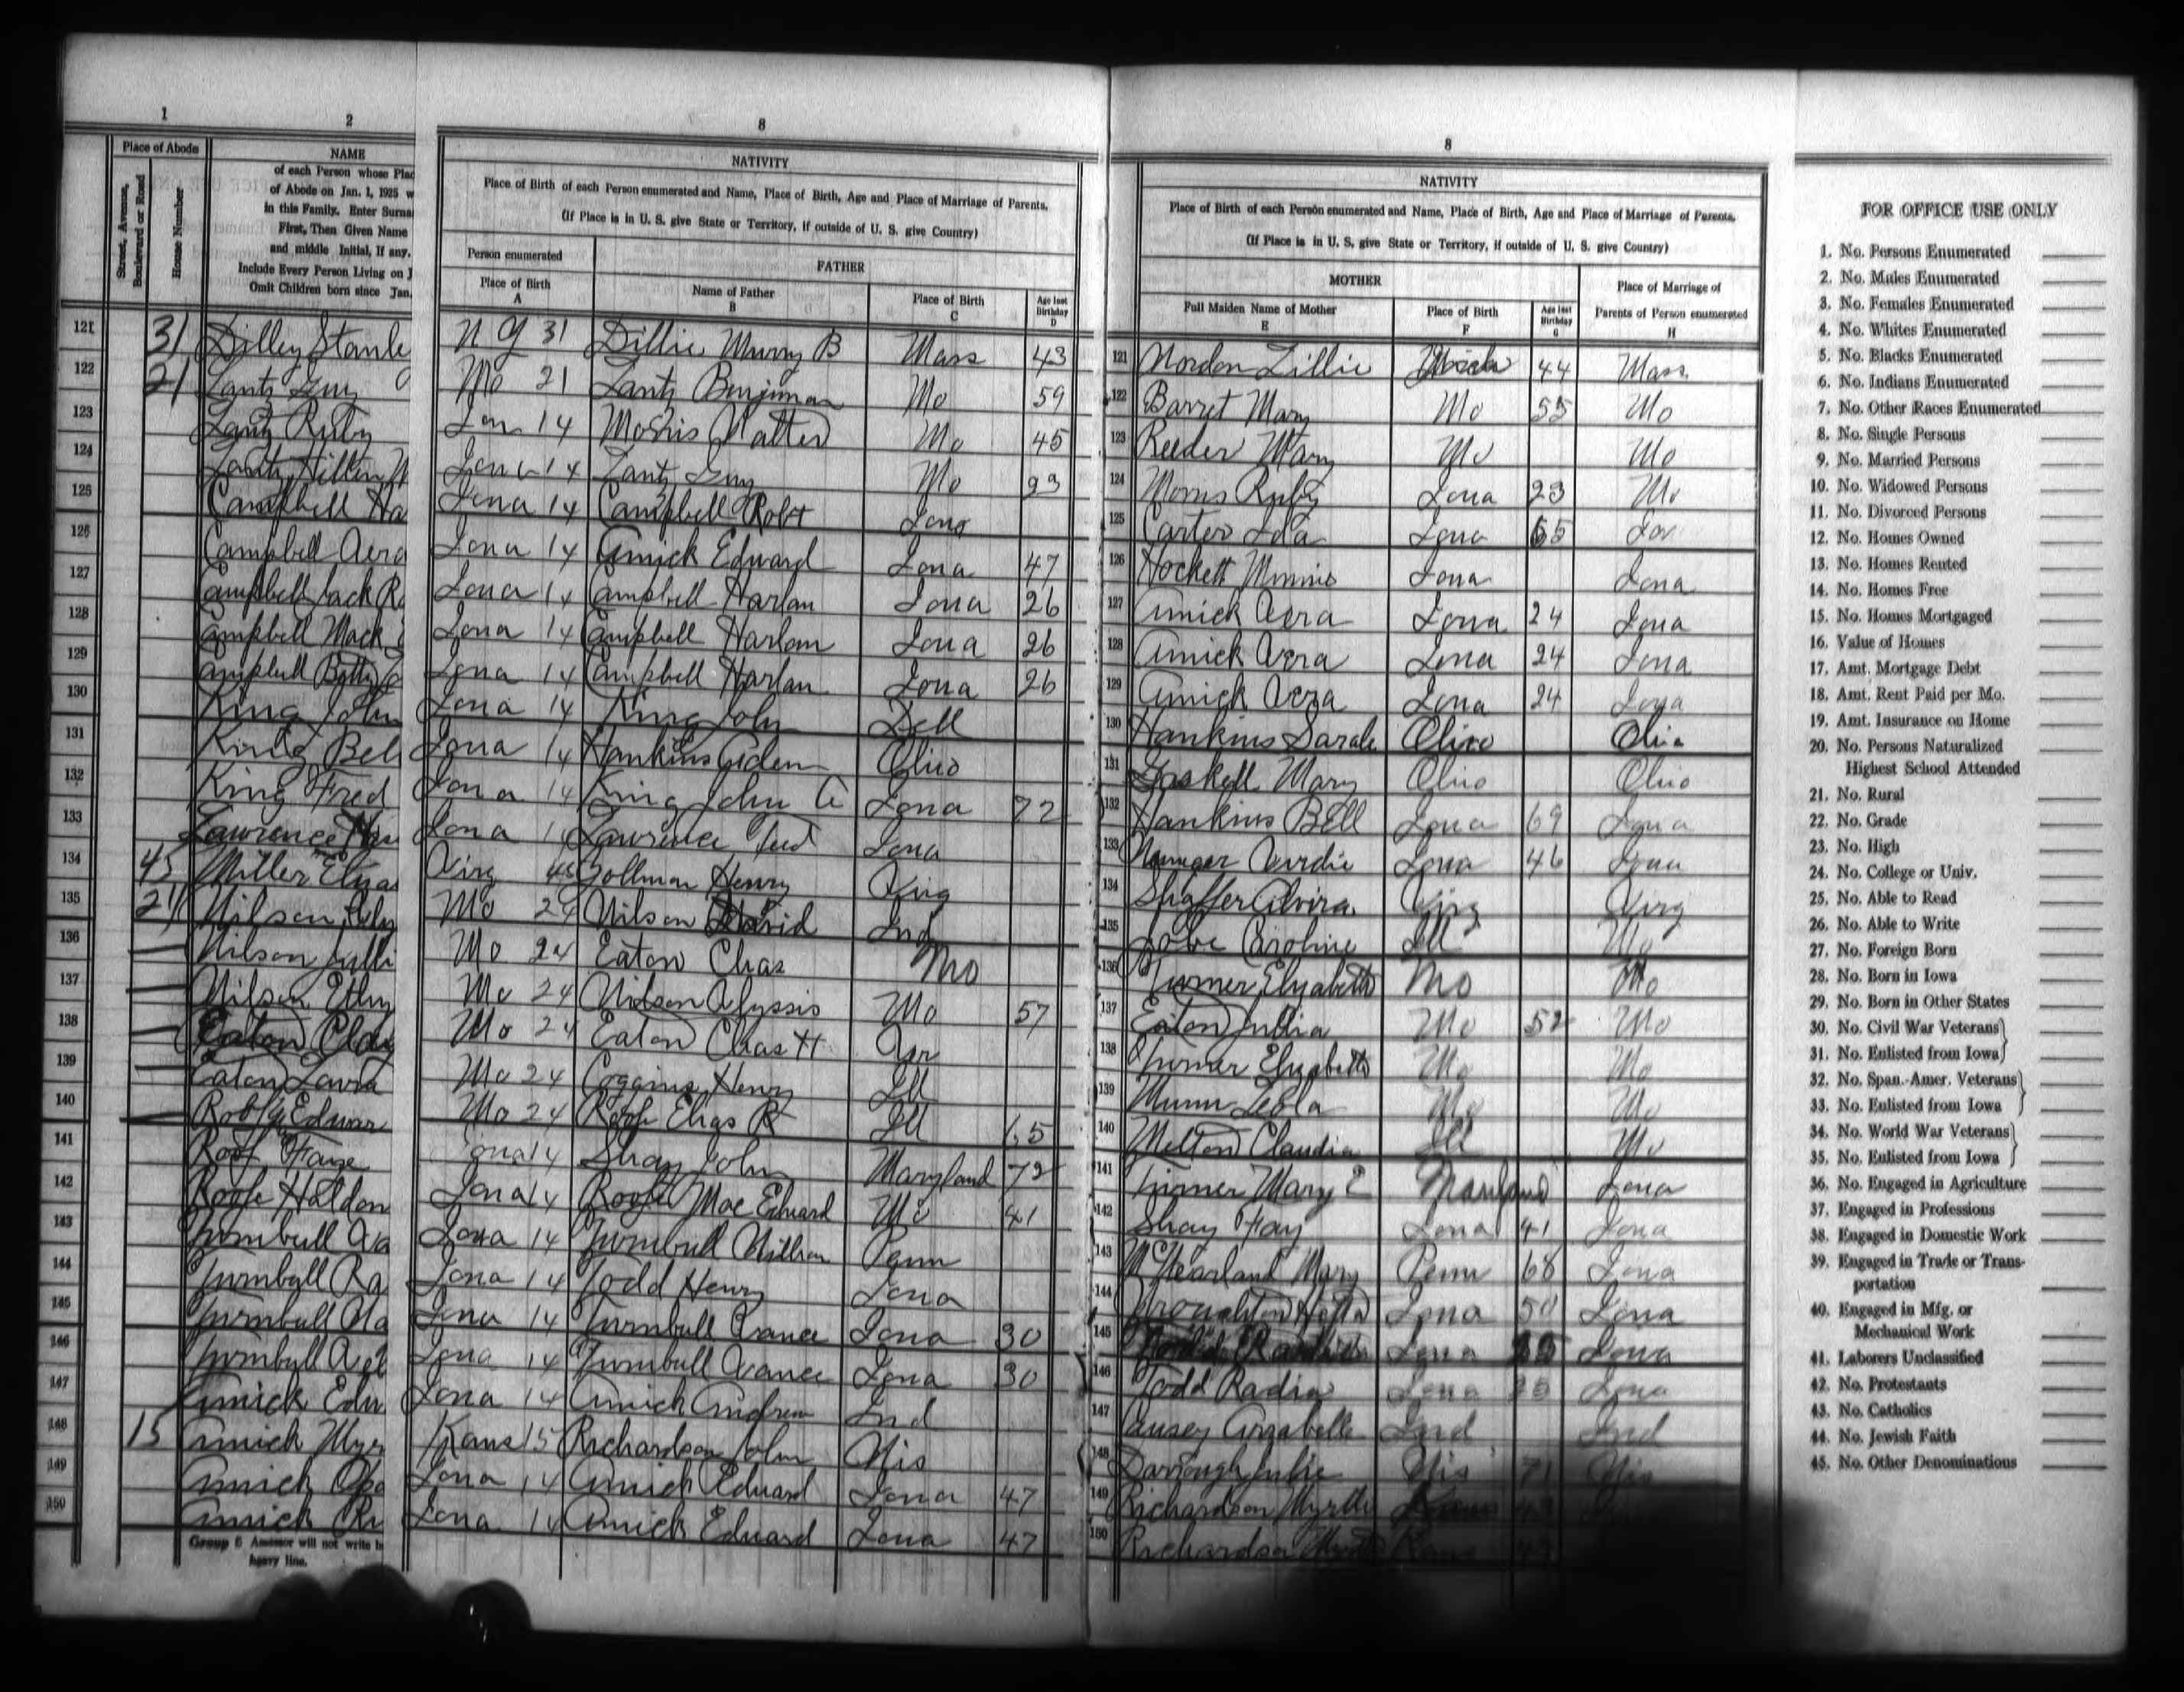 1
2
8
8
Place of Abode
Street, Avenue, Boulevard or Road
House Number
NAME
of each Person whose Plac
of Abode on Jan. 1, 1925 w
in this Family. Enter Surna
First, Then Given Name
and middle Initial, if any.
Include Every Person Living on J
Omit Children born since Jan.
NATIVITY
Place of Birth of each Person enumerated and Name, Place of Birth, Age and Place of Marriage of Parents.
(If Place is in U. S. give State or Territory, if outside of U. S. give Country)
Person enumerated
Place of Birth
A
FATHER
Name of Father
B
Place of Birth
C
Age last Birthday
D
NATIVITY
Place of Birth of each Person enumerated and Name, Place of Birth, Age and Place of Marriage of Parents.
(If Place is in U. S. give State or Territory, if outside of U. S. give Country)
MOTHER
Full Maiden Name of Mother
E
Place of Birth
F
Age last Birthday
G
Place of Marriage of
Parents of Person enumerated
H
121 31 Dilley Stanle N Y 31 Dillie Murry B Mass 43 121 Nordon Lillie 44 Mass
122 21 Lantz Guy Mo 21 Lantz Benjiman Mo 59 122 Barret Mary Mo 55 Mo
123 Lantz Ruby Iowa 14 Morris Walter Mo 45 123 Reeder Mary Mo Mo
124 Lantz Iowa 14 Lantz Guy Mo 23 124 Morris Ruby Iowa 23 Mo
125 Campbell Ha Iowa 14 Campbell Robt Iowa 125 Carter Ida Iowa 65 Iow
126 Campbell Vera Iowa 14 Amick Edward Iowa 47 126 Hockett Minnie Iowa Iowa
127 Campbell Jack Ro Iowa 14 Campbell Harlan Iowa 26 127 Amick Vera Iowa 24 Iowa
128 Campbell Mack Iowa 14 Campbell Harlam Iowa 26 128 Amick Vera Iowa 24 Iowa
129 Campbell Betty Iowa 14 Campbell Harlan Iowa 26 129 Amick Vera Iowa 24 Iowa
130 King John Iowa 14 King John Dell 130 Hankins Sarah Ohio Ohio
131 King Bell Iowa 14 Hankins Ohio 131 Gaskell Mary Ohio Ohio
132 King Fred Iowa 14 King John A Iowa 72 132 Hankins Bell Iowa 69 Iowa
133 Lawrence Iowa 14 Lawrence Fred Iowa 133 Iowa 46 Iowa
134 45 Miller Virg 45 Henry Virg 134 Shaffer Alvira Virg Virg
135 24 Wilson Mo 24 Wilson David Ind 135 Caroline Ill Mo
136 Wilson Julli Mo 24 Eaton Chas Mo 136 Turner Elizabeth Mo Mo
137 Wilson Mo 24 Wilson Ulyssis Mo 57 137 Eaton Jullia Mo 52 Mo
138 Eaton Mo 24 Eaton Chas H 138 Turner Elizabeth Mo Mo
139 Eaton Laura Mo 24 Coggins Henry Ill 139 Munn Leola Mo Mo
140 Roof Edwar Mo 24 Roof Elias R Ill 65 140 Melton Claudia Ill Mo
141 Roof Faye Iowa 14 Shay John Maryland 72 141 Turner Mary E Maryland Iowa
142 Roofe Haldon Iowa 14 Roofe Mac Edward Mo 41 142 Shay Fay Iowa 41 Iowa
143 Turnbull Va Iowa 14 Turnbull William Penn 143 Mary Penn 68 Iowa
144 Turnbull Ra Iowa 14 Todd Henry Iowa 144 Iowa 50 Iowa
145 Turnbull Iowa 14 Turnbull Vance Iowa 30 145 Iowa Iowa
146 Turnbull Iowa 14 Turnbull Vance Iowa 30 146 Todd Radia Iowa 25 Iowa
147 Amick Edw Iowa 14 Amick Andrew Ind 147 Causey Arrabelle Ind Ind
148 15 Amick Myr Kans 15 Richardson John Wis 148 Darrough Julie Wis 71 Wis
149 Amick Opa Iowa 14 Amick Edward Iowa 47 149 Richardson Myrtle
150 Amick Iowa 14 Amick Edward Iowa 47 150 Richardson Kans
Group 5 Assessor will not write b
heavy line.
FOR OFFICE USE ONLY
1. No. Persons Enumerated
2. No. Males Enumerated
3. No. Females Enumerated
4. No. Whites Enumerated
5. No. Blacks Enumerated
6. No. Indians Enumerated
7. No. Other Races Enumerated
8. No. Single Persons
9. No. Married Persons
10. No. Widowed Persons
11. No. Divorced Persons
12. No. Homes Owned
13. No. Homes Rented
14. No. Homes Free
15. No. Homes Mortgaged
16. Value of Homes
17. Amt. Mortgage Debt
18. Amt. Rent Paid per Mo.
19. Amt. Insurance on Home
20. No. Persons Naturalized
Highest School Attended
21. No. Rural
22. No. Grade
23. No. High
24. No. College or Univ.
25. No. Able to Read
26. No. Able to Write
27. No. Foreign Born
28. No. Born in Iowa
29. No. Born in Other States
30. No. Civil War Veterans
31. No. Enlisted from Iowa
32. No. Span.-Amer. Veterans
33. No. Enlisted from Iowa
34. No. World War Veterans
35. No. Enlisted from Iowa
36. No. Engaged in Agriculture
37. Engaged in Professions
38. Engaged in Domestic Work
39. Engaged in Trade or Trans-
portation
40. Engaged in Mfg. or
Mechanical Work
41. Laborers Unclassified
42. No. Protestants
43. No. Catholics
44. No. Jewish Faith
45. No. Other Denominations